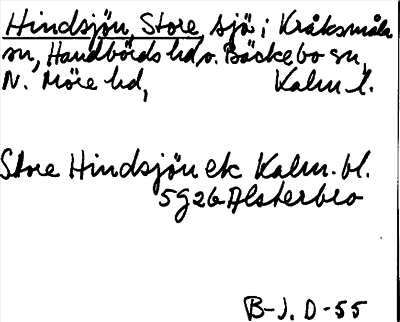 Hindsjön, Store, sjö i Kråksmåla
sn, Handbörds hd o. Bäckebo sn,
N. Möre hd, Kalm. l.
Store Hindsjön ek Kalm. bl.
5g26 Alsterbro
B-J. D-55